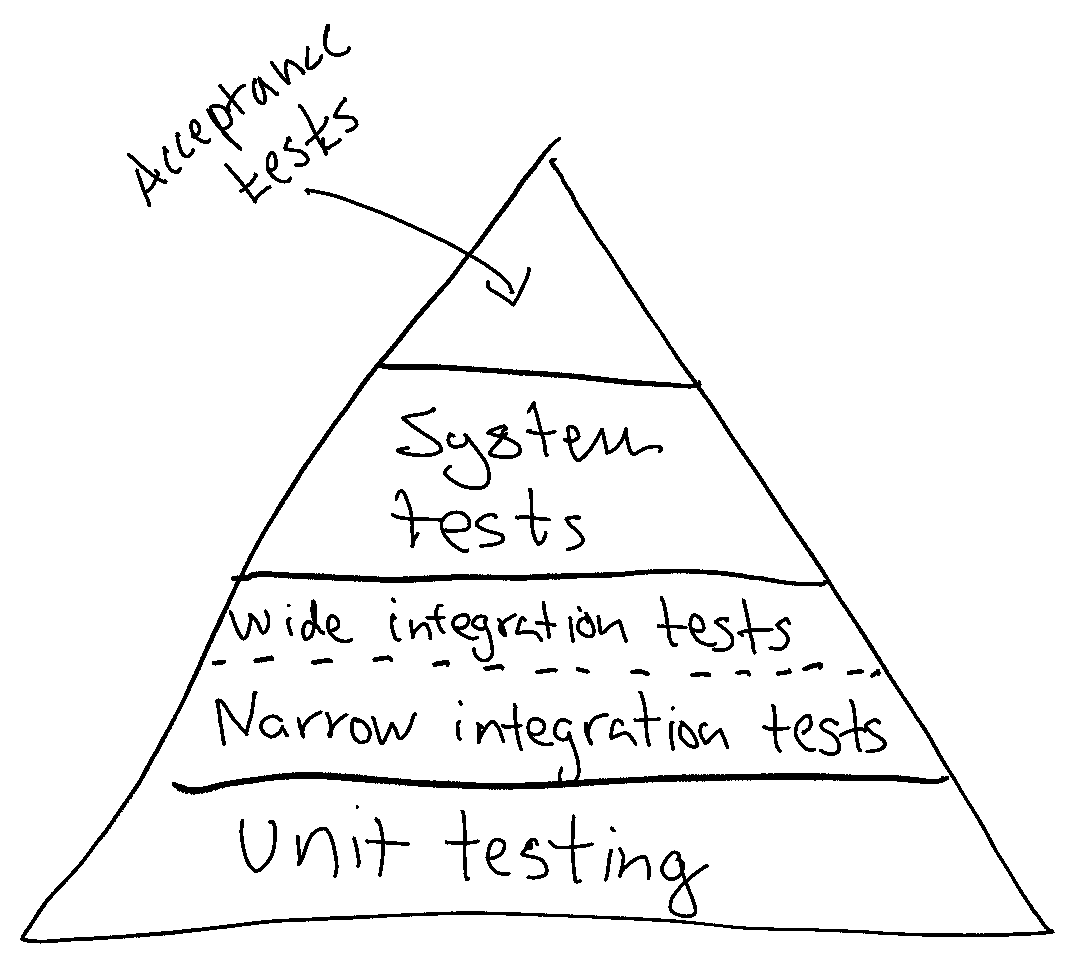 Acceptance
tests
System
tests
Wide integration tests
Narrow integration tests
Unit testing